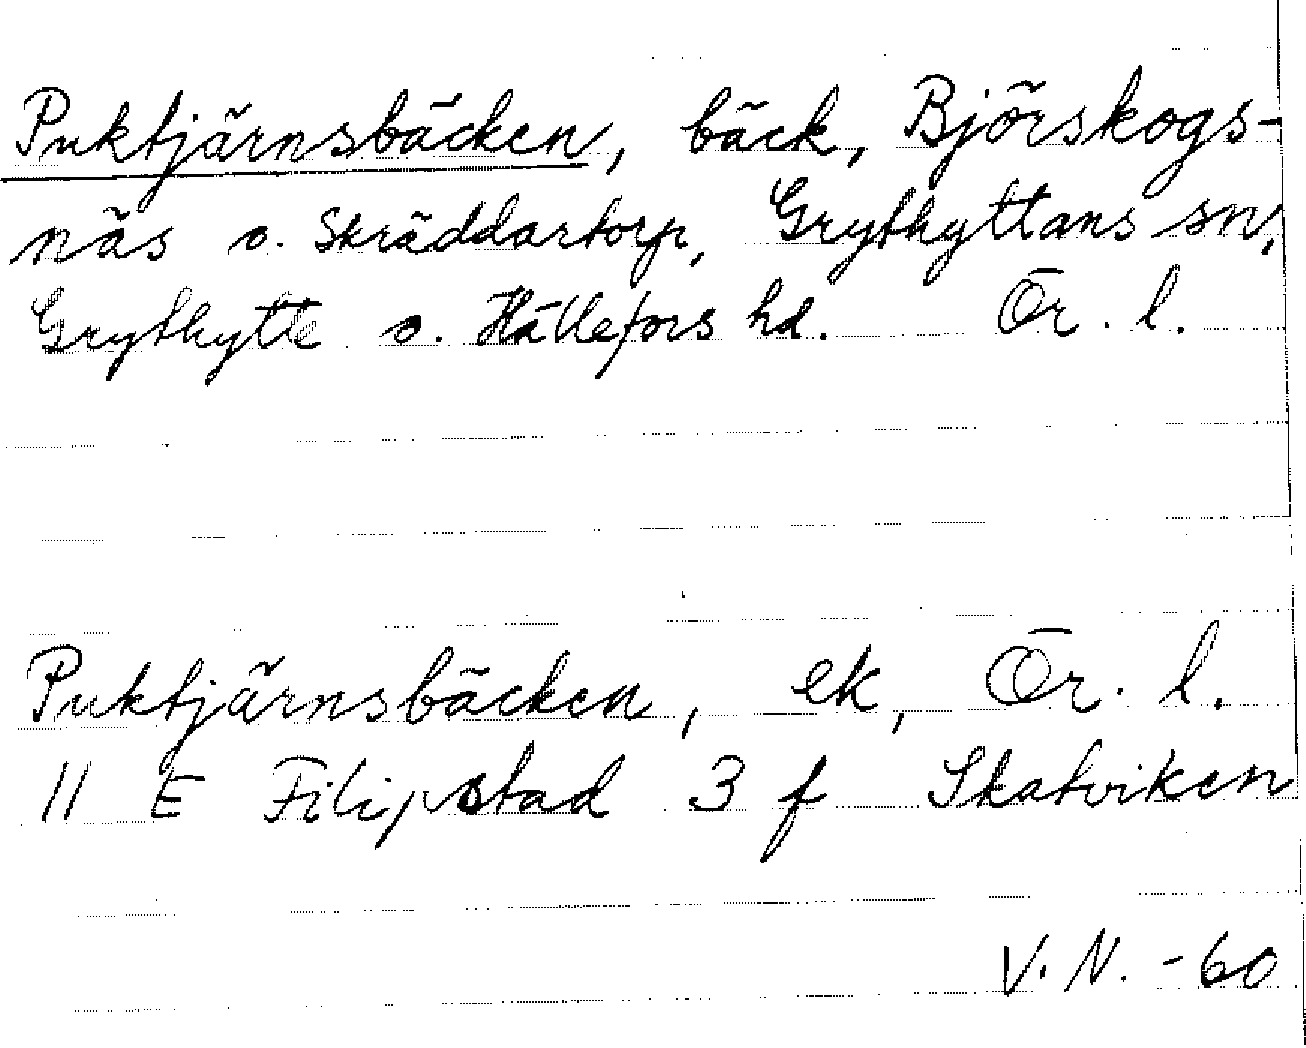 Puktjärnsbäcken, bäck, Björskogs-
näs o. Skräddartorp, Grythyttans sn,
Grythytte o. Hällefors hd. Ör. l.
Puktjärnsbäcken, ek, Ör. l.
11 E Filipstad 3 f Skatviken
V. N. -60